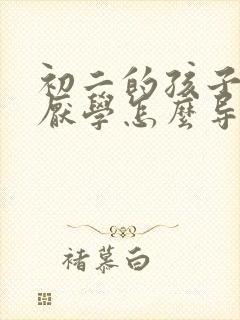 初二的孩子
厭學怎麼导
褚慕白